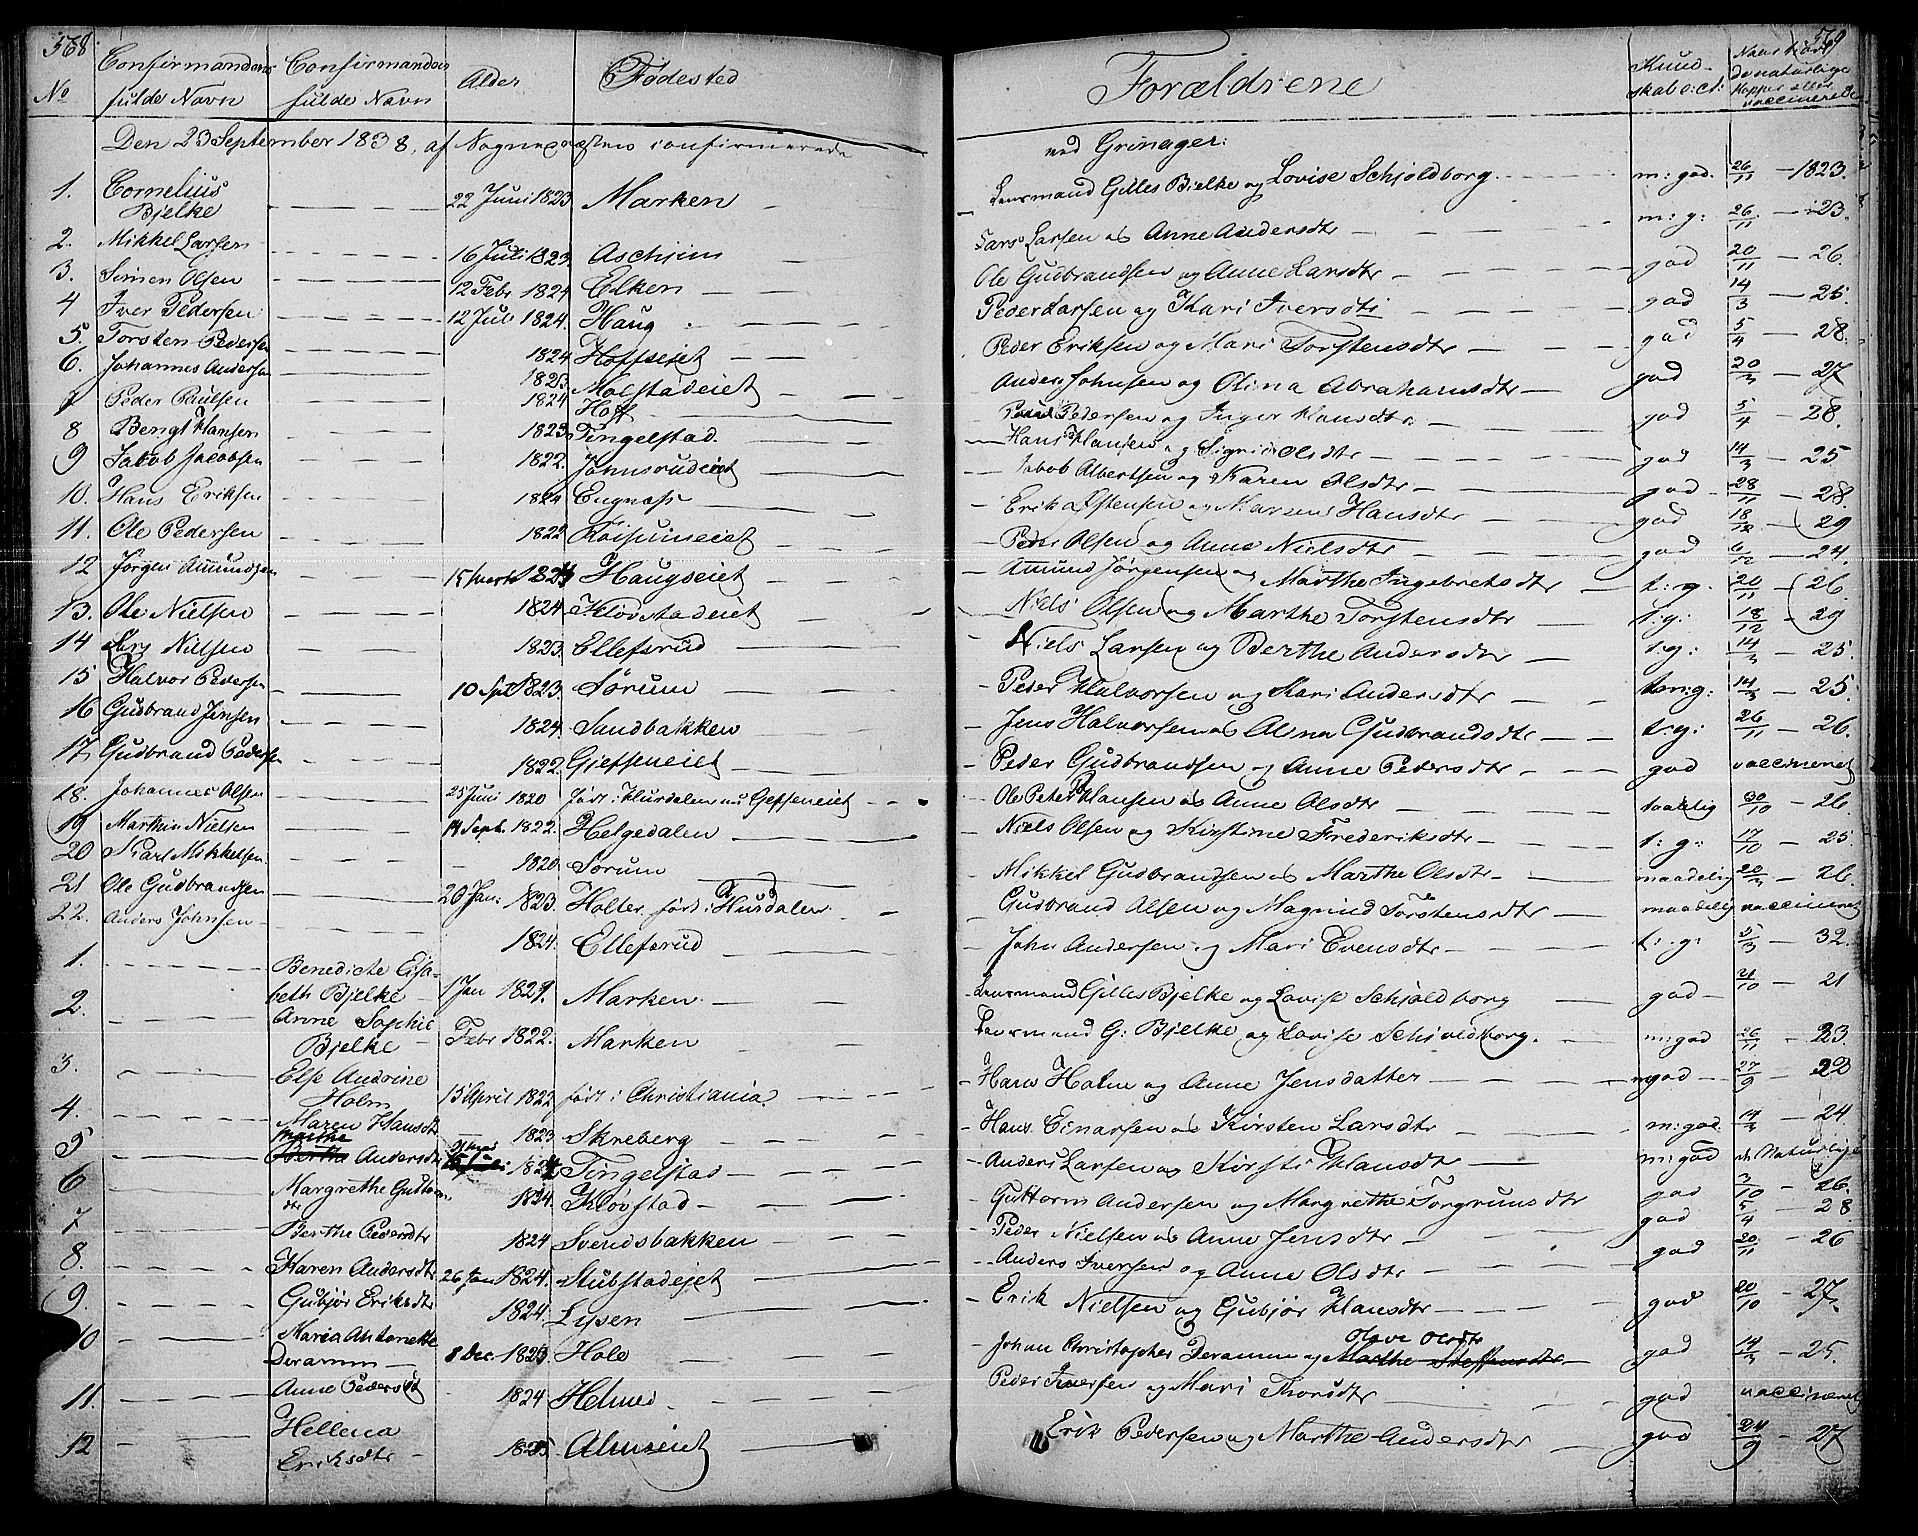 568.
No
Confirmandens fulde Navn
Confirmandens fulde Navn
Alder
Fødested
Den 23 September 1838, af Sognepræsten confirmerede
1. Cornelius Bjelke 22 Juni 1823 Marken
2. Mikkel Larsen 16 Juli 1823 Aschjim
3. Simen Olsen 12 Febr 1824 Elken
4 Iver Pedersen 12 Juli 1824. Haug
5. Torsten Pedersen 1824 Hoffseiet
6. Johannes Andersen 1823 Molstadeiet
7 Peder Paulsen 1824 Hoff
8 Bengt Hansen 1823 Tingelstad.
9 Jakob Jacobsen 1822. Jonnsrudeiet
10. Hans Eriksen 1824 Engnæss
11. Ole Pedersen 1822
12 Jørgen Amundsen 15 Marts 1824 Haugseiet
13. Ole Nielsen 1824 Kløvstadeiet
14 Lars Nielsen 1823. Ellefsrud
15 Halvor Pedersen 10 Sept 1823. Sørum
16 Gudbrand Jensen 1824. Sandbakken
17. Gudbrand Pedersen 1822. Gjeffseneiet
18. Johannes Olsen 25 Juni 1820 født i Hurdalen nu Geffseneiet
19 Martin Nielsen 14 Sept. 1822. Helgedalen
20 Karl Mikkelsen 1820. Sørum
21 Ole Gudbrandsen 20 Jan: 1823. Holter født i Hurdalen
22. Anders Johnsen 1824. Ellefsrud
1. Benedicte Elsabeth Bjelke 1 Jan 1821. Marken
2. Anne Sophie Bjelke Febr 1822. Marken
3. Else Andrine Holm 15 April 1822 født i Christiania.
4. Maren Hansdtr 1823 Skreberg
5 Marthe Andersdtr 1824 Tingelstad
6 Margrethe Guttormsdtr 1824. Kløvstad
7 Berthe Pedersdtr 1824 Svendsbakken
8. Karen Andersdtr 26 Jan 1824. Stubstadejet
9. Gubjør Eriksdtr 1824. Lysen
10 Maria Antonette Deramm 8 Dec. 1823 Hole
11. Anne Pedersd 1824 Helmed
12 Hellena Eriksdtr 1825. Almseiet
569
Forældrene
Kundskab e: ct:
Naar havt de naturlige Kopper eller vaccinerede
ved Grinager:
Lensmand Gilles Bjelke og Lovise Schjoldborg m: god. 26/11 - 1823.
Lars Larsen og Anne Andersdtr m: g: 26/11 - 23.
Ole Gudbrandsen og Anne Larsdtr god 20/11 - 26.
Peder Larsen og Kari Iversdtr god 14/3 - 25.
Peder Eriksen og Mari Torstensdtr god 5/4 - 28.
Anders Johnsen og Olina Abrahamsdtr god 20/3 - 27
Pedersen og Inger Hansdtr god 5/4 - 28.
Hans Hansen og Signe Olsdtr god 14/3 - 25
Jakob Albertsen og Karen Olsdtr god 28/11 - 28.
Erik Østensen og Karen Hansdtr god 18/12 - 29
Peder Olsen og Anne Nielsdtr god 6/12 - 24.
Amund Jørgensen og Marthe Ingebretsdtr t: g: 20/11 - 26.
Niels Olsen og Marthe Torstensdtr t: g: 18/12 - 29
Niels Larsen og Berthe Andersdtr t: g: 14/3 - 25.
Peder Halvorsen og Kari Andersdtr t: m: g: 14/3 - 25.
Jens Halvorsen og Alina Gudbrandsdtr t: g: 26/11 - 26.
Peder Gudbrandsen og Anne Pedersdtr god vaccineret
Ole Peter Hansen og Anne Olsdtr taalelig 30/10 - 26.
Niels Olsen og Kirstine Frederiksdtr t: g: 17/10 - 25
Mikkel Gudbrandsen og Marthe Olsdtr maadelig 20/3 - 26.
Gudbrand Olsen og Magnild Torstensdtr maadelig vaccineret
John Andersen og Mari Evensdtr t: g: 5/3 - 32.
Lensmand Gilles Bjelke og Lovise Schjoldborg god 21/10 - 21
Lensmand G: Bjelke og Lovise Schjoldborg. m: god 26/11 - 23.
Hans Holm og Anne Jensdatter mgod 27/9 - 22
Hans Einarsen og Kirsten Larsdtr m: god 14/3 - 24
Anders Larsen og Kirsti Hansdtr m: god de Naturlige
Guttorm Andersen og Margrethe Torgrimsdtr god 3/10 - 26.
Peder Nielsen og Anne Jensdtr god 5/4 - 28
Anders Iversen og Anne Olsdtr god 20/11 - 26
Erik Nielsen og Gubjør Hansdtr god 20/10 - 27.
Johan Christopher Deramm og Marthe Steffensdtr Olave Olsdtr god 14/3 - 25.
Peder Iversen og Mari Thorsdtr god vaccineret
Erik Pedersen og Marthe Andersdtr god 24/9 - 27